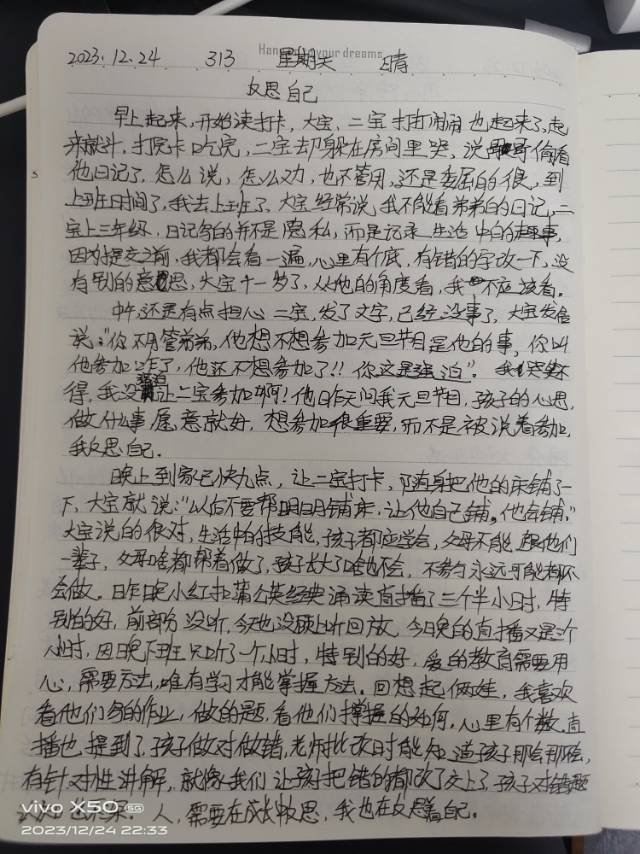 Hang on your dreams
2023.12.24 313 星期天 晴
反思自己
早上起来,开始读打卡,大宝,二宝打打闹闹也起来了,起
来就斗,打完卡吃完,二宝去却躲在房间里哭,说哥偷看
他日记了,怎么说,怎么劝,也不管用,还是委屈的很,到
上班时间了,我去上班了,大宝经常说我不能看弟弟的日记,二
宝上三年级,日记写的并不是隐私,而是记录生活中的趣事,
因为提交之前,我都会看一遍,心里有个底,有错的字改一下,没
有别的意思,大宝十一岁了,从他的角度看,我不应该看。
中午,还是有点担心二宝,发了文字,已经没事了,大宝发信
说:"你不用管弟弟,他想不想参加元旦节目是他的事,你叫
他参加咋了,他还不想参加了!!你这是强迫"。我哭笑不
得,我没强迫让二宝参加啊!他昨天问我元旦节目,孩子的心思,
做什么事愿意就好,想参加很重要,而不是被说着参加,
我反思自己。
晚上到家已快九点,让二宝打卡,随身把他的床铺了一
下,大宝就说:"以后不要帮明明铺床,让他自己铺,他会铺,"
大宝说的很对,生活中的技能,孩子都应学会,父母不能跟他们
一辈子,父母啥都帮着做了,孩子长大了啥也不会,不努力永远可能都不
会做。昨晚小红批蒲公英经典诵读直播了三个半小时,特
别的好,前部分没听,今天也没顾上听回放。今日晚的直播又是三个
小时,因晚下班只听了一个小时,特别的好,爱的教育需要用
心,需要方法,唯有学习才能掌握方法。回想起俩娃,我喜欢
看他们写的作业,做的题,看他们掌握的如何,心里有个数,直
播也提到了,孩子做对做错,老师批改时能知道孩子那会那不会,
有针对性讲解,就像我们让孩子把错的都改了交上了,孩子对错题
人,需要在成长中反思,我也在反思着自己。
vivo X50 5G
2023/12/24 22:33